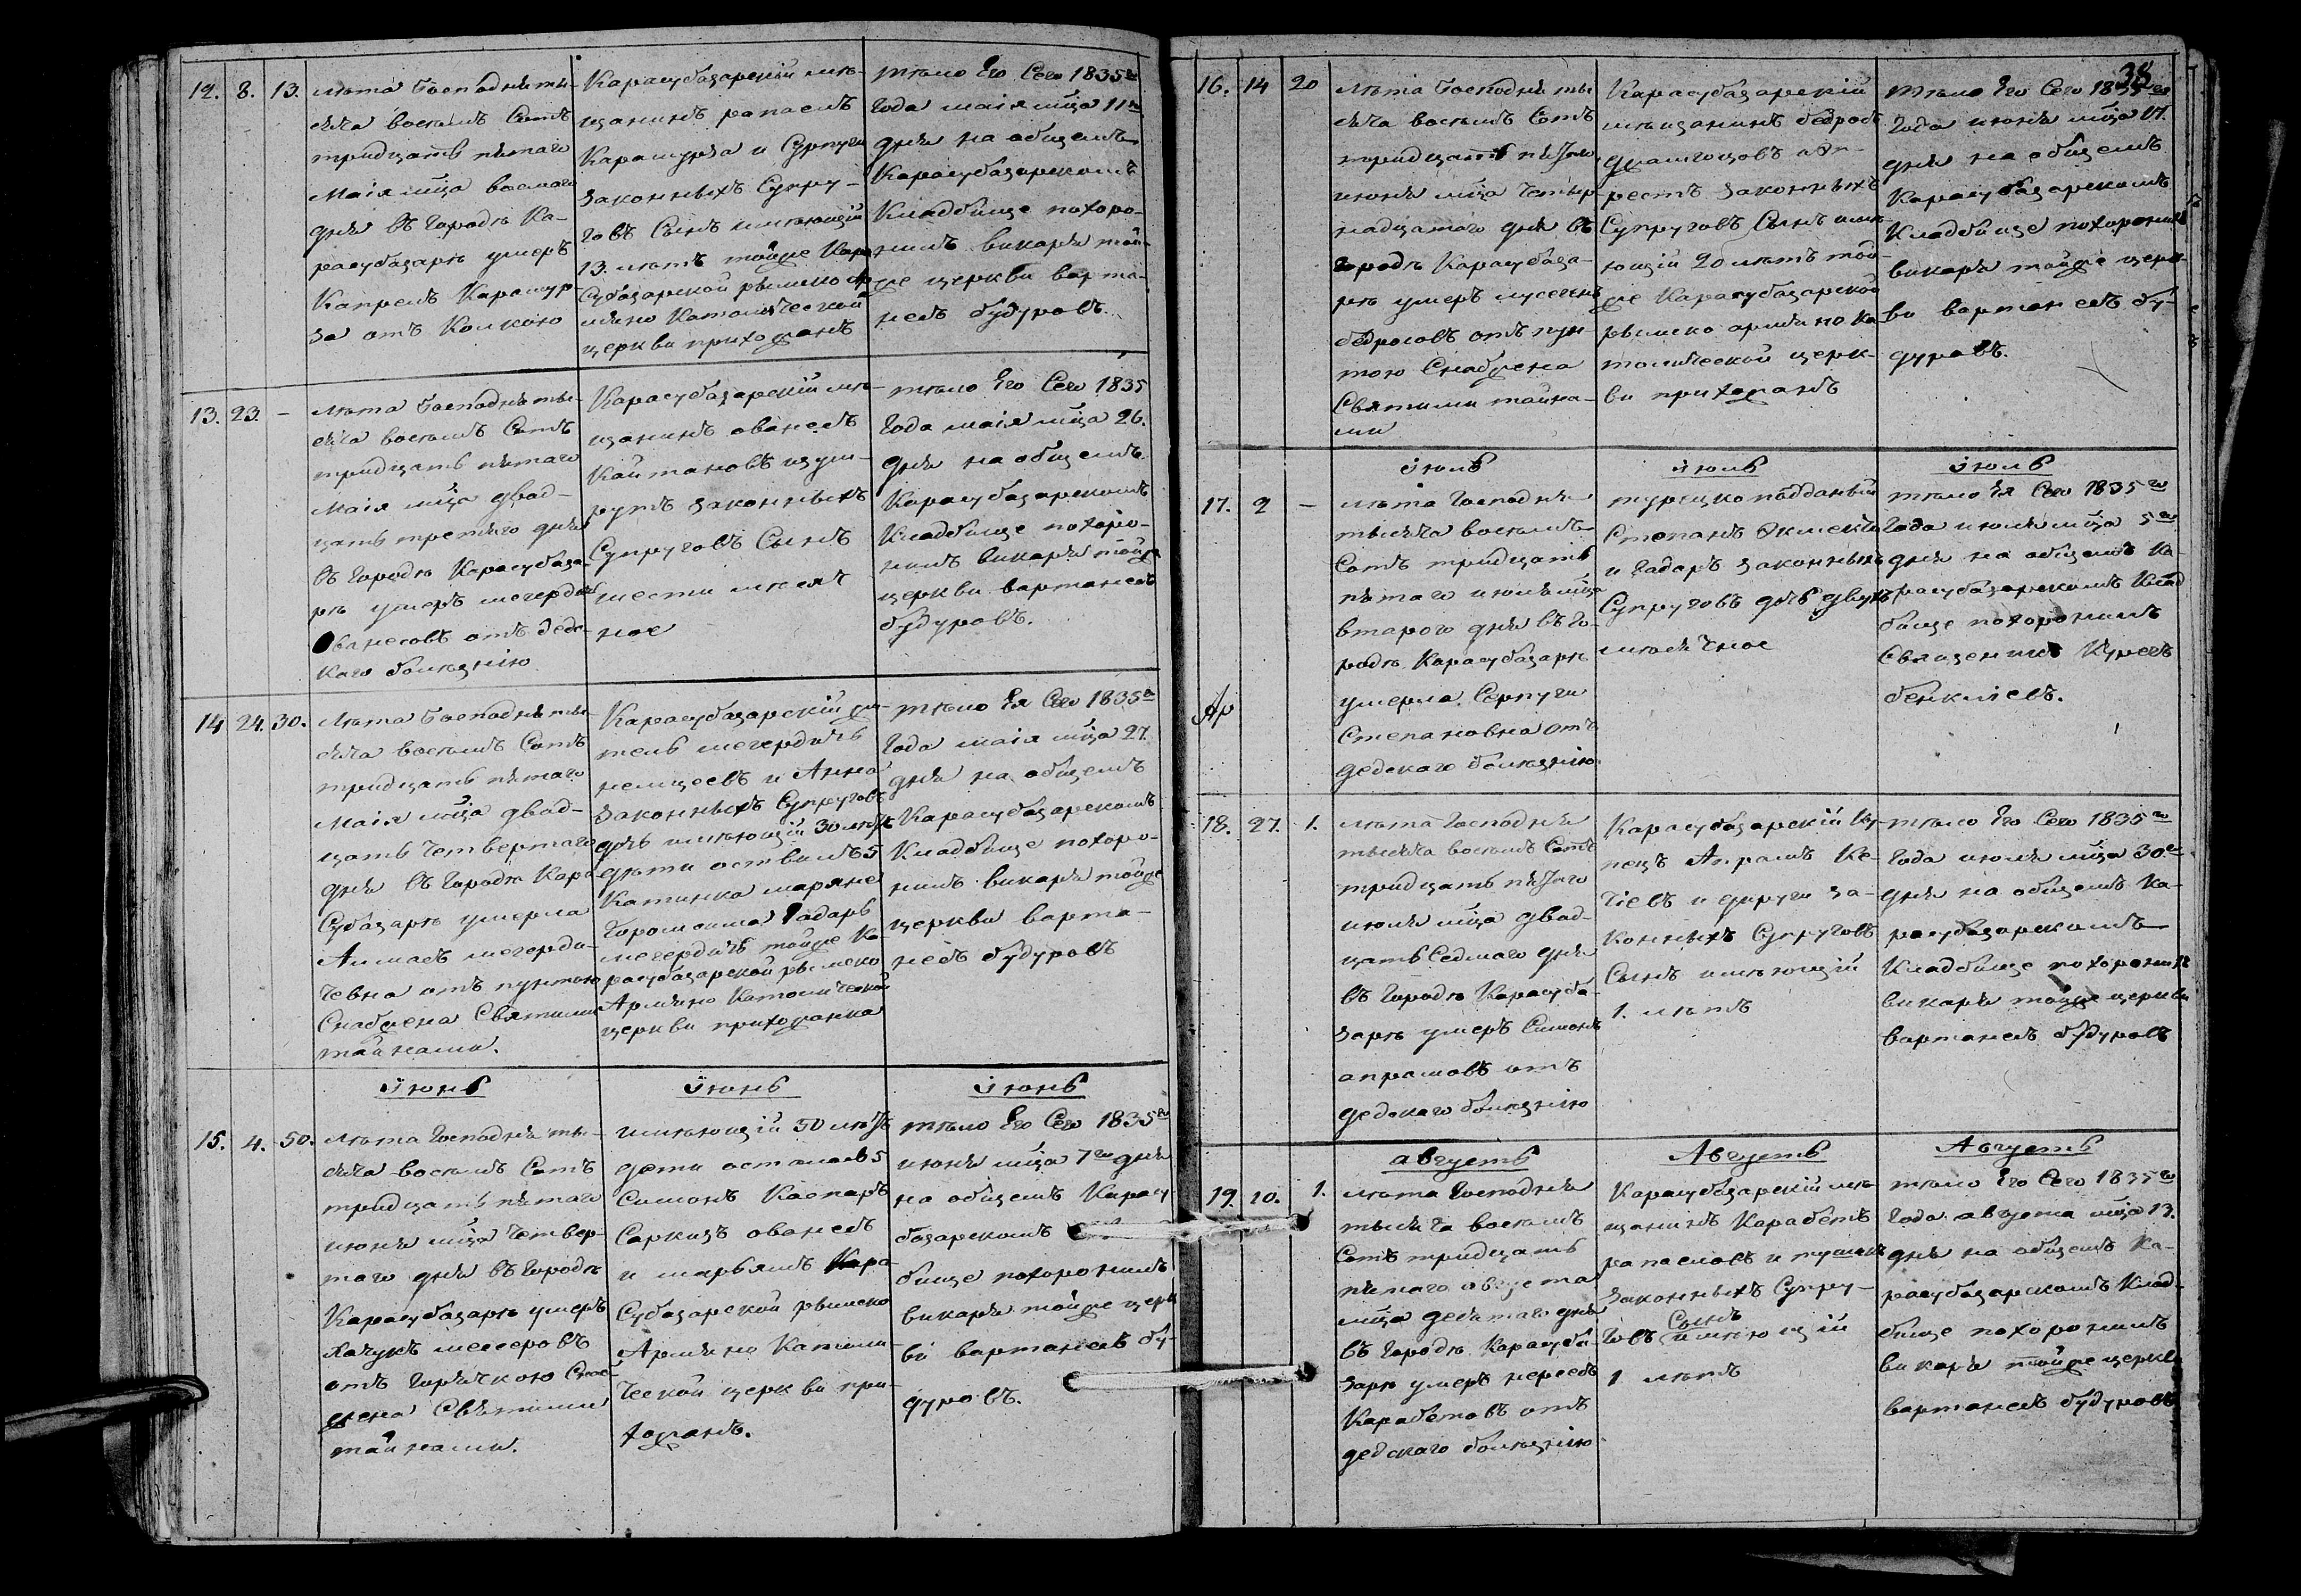 12. 8. 13.
лѣта Господня ты-
сяча восемъ Сотъ
тридцать пятаго
Маія мѣца восмаго
дня въ Городѣ Ка-
расубазарѣ умеръ
Капрелъ Карамур-
за отъ
Карасубазарскій мѣ-
щанинъ рапаелъ
Карамурза и Сурпуги
законныхъ Супру-
говъ Сынъ имѣющій
13. лѣтъ тойже Кара
Субазарской римско Ар
мяно Католической
церкви прихожанъ
тѣло Его Сего 1835го
Года маія мѣца 11го
дня на общемъ
Карасубазарскомъ
Кладбище похоро-
нилъ викарія той-
же церкви варта-
несъ будуровъ.
13. 23. –
лѣта Господня ты-
сяча восемъ Сотъ
тридцать пятаго
Маія мѣца двад-
цать третяго дня
въ Городѣ Карасубаза-
рѣ умеръ мегердичъ
Ованесовъ отъ деде-
каго болѣзнію
Карасубазарскій мѣ-
щанинъ ованесъ
Кайтановъ
законныхъ
Супруговъ Сынъ
шести месяч
ное
тѣло Его Сего 1835
Года маія мѣца 26.
дня на общемъ
Карасубазарскомъ
Кладбище похоро-
нилъ викарія тойже
церкви вартанесъ
будуровъ.
14 24. 30.
лѣта Господня ты-
сяча восемъ Сотъ
тридцать пятаго
Маія мѣца двад-
цать Четвертаго
дня въ Городѣ Кара
Субазарѣ умерла
Алмасъ мегерди-
чевна отъ пунтою
Снабжена Святыми
тайнами.
Карасубазарскій жи-
тель мегердичъ
и Анна
законныхъ Супруговъ
дочь имѣющій 30 лѣтъ
дѣти оствилъ 5
Катинка маряне
Гадаръ
мегердичъ тойже Ка
расубазарской римско
Армяно Католической
церкви прихожанка
тѣло Ея Сего 1835го
Года маія мѣца 27.
дня на общемъ
Карасубазарскомъ
Кладбище похоро-
нилъ викарія тойже
церкви варта-
несъ будуровъ
іюнь
іюнь
іюнь
15. 4. 50.
лѣта Господня ты-
сяча восемъ Сотъ
тридцать пятаго
июня мѣца Четвер-
таго дня въ Городѣ
Карасубазарѣ умеръ
Хачукъ месеровъ
отъ Горячкою Снаб
жена Святыми
тайнами.
имѣющій 50 лѣтъ
дети осталось 5
Симонъ Каспаръ
Саркизъ ованесъ
и марьямъ Кара-
Субазарской римско
Армяно Католи-
ческой церкви при-
хожанъ.
тѣло Его Сего 1835го
июня мѣца 7го дня
на общемъ Карасу
базарскомъ
бище похоронилъ
викарія тойже церк
ви вартанесъ бу-
дуровъ.
38
16. 14 20
лѣта Господня ты
сяча восемъ Сотъ
тридцать пятаго
июня мѣца Четыр
надцатаго дня въ
городѣ Карасубаза-
рѣ умеръ
бедросовъ отъ пун-
тою Снабжена
Святыми тайна-
ми
Карасубазарскій
мѣщанинъ бедросъ
законныхъ
Супруговъ Сынъ имѣ-
ющій 20 лѣтъ той-
же Карасубазарской
римско армяно ка
толической церк-
ви прихожанъ
тѣло Его Сего 1835го
Года июня мѣца 17.
дня на общемъ
Карасубазарскомъ
Кладбище похоронилъ
викарія тойже церк-
ви вартанесъ бу-
дуровъ.
іюль
іюль
іюль
17. 2 –
лѣта Господня
тысяча восемъ
Сотъ тридцать
пятаго июля мѣца
втораго дня въ Го-
родѣ Карасубазарѣ
умерла Серпуги
Степановна отъ
дедскаго болѣзнію
турецко подданый
Степанъ Экмекчи
и Гадаръ законныхъ
Супруговъ дочь двухъ
мѣсячное
тѣло Ея Сего 1835го
Года июля мѣца 5го
дня на общемъ Ка-
расубазарскомъ Клад
бище похоронилъ
Священикъ
18. 27. 1.
лѣта Господня
тысяча восемъ Сотъ
тридцать пятаго
июля мѣца двад-
цать Седмаго дня
въ Городѣ Карасуба-
зарѣ умеръ Симонъ
апрамовъ отъ
дедскаго болѣзнію
Карасубазарскій Ку-
пецъ Апрамъ Ке-
чіевъ и за-
конныхъ Супруговъ
Сынъ имѣющій
1. лѣтъ
тѣло Его Сего 1835го
Года июля мѣца 30го
дня на общемъ Ка-
расубазарскомъ
Кладбище похоронилъ
викарія тойже церкви
вартанесъ будуровъ
августъ
Августъ
Августъ
19. 10. 1.
лѣта Господня
тысяча восемъ
Сотъ тридцать
пятаго августа
мѣца десятаго дня
въ Городѣ Карасуба-
зарѣ умеръ нерсесъ
Карабетовъ отъ
дедскаго болѣзнію
Карасубазарскій мѣ-
щанинъ Карабетъ
рапаеловъ и
законныхъ Супру-
говъ Сынъ имѣющій
1 лѣтъ
тѣло Его Сего 1835го
Года августа мѣца 13.
дня на общемъ Ка-
расубазарскомъ Клад-
бище похоронилъ
викарія тойже церкви
вартанесъ будуровъ